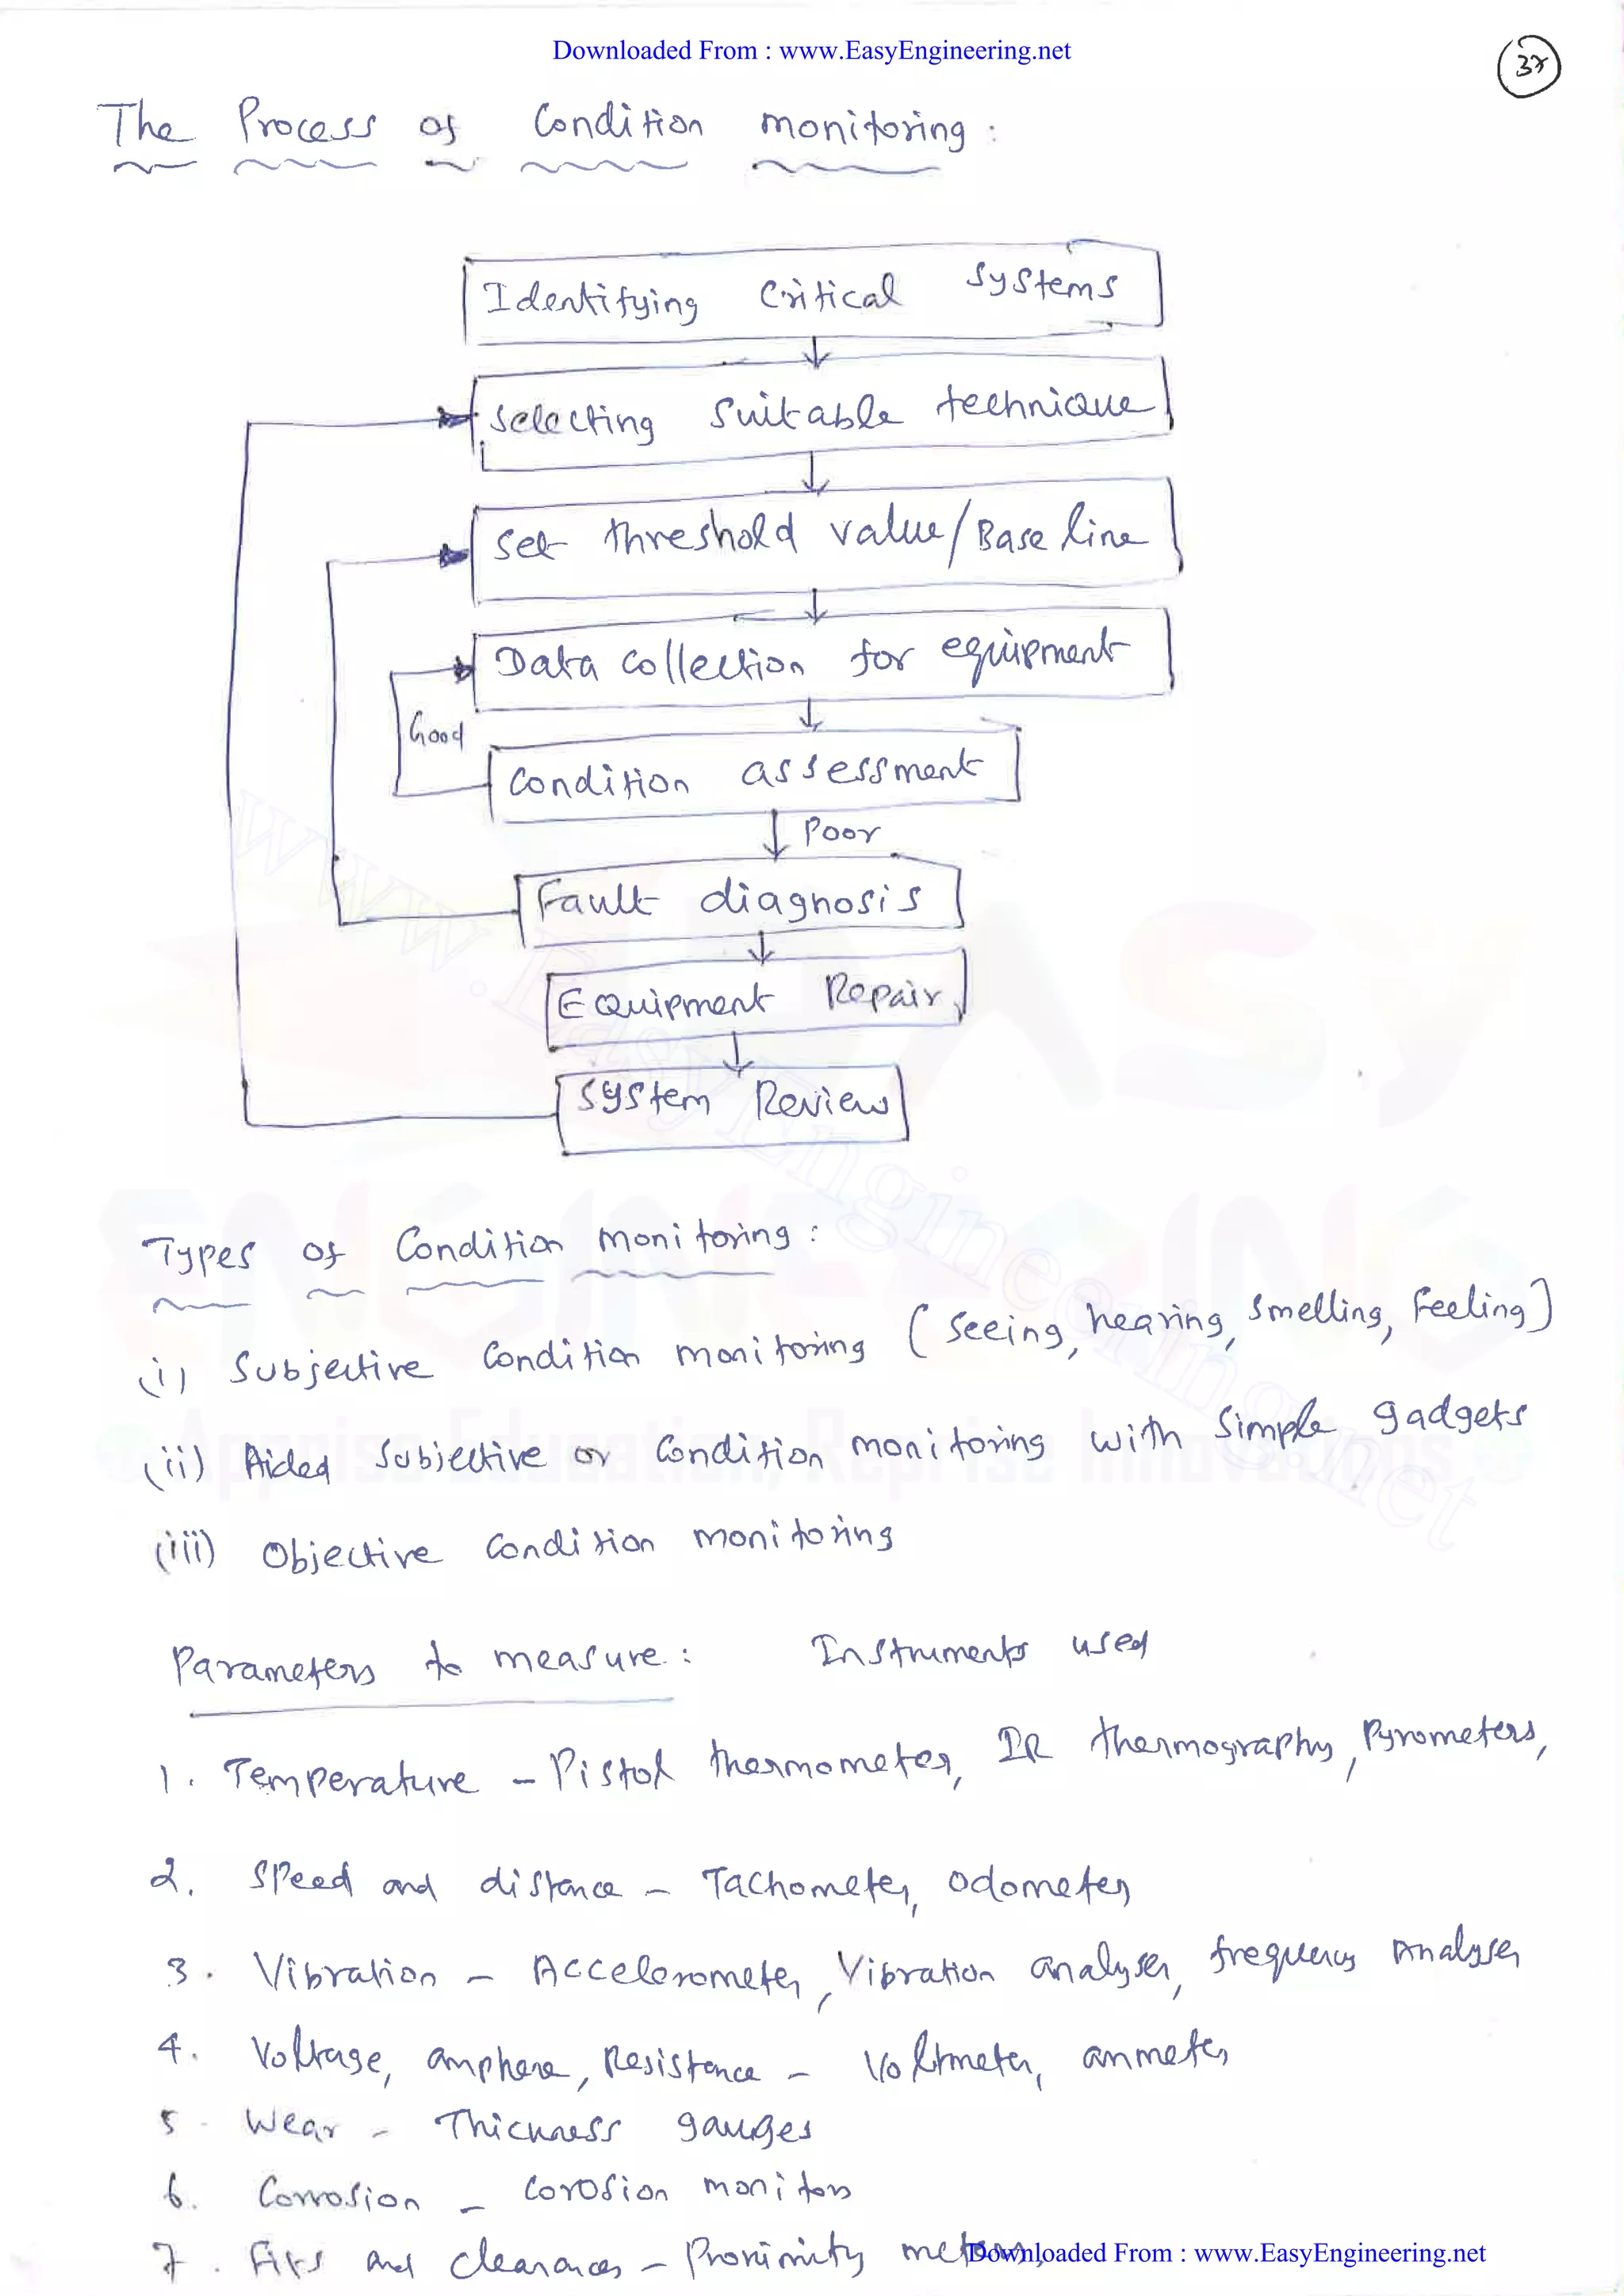 Downloaded From : www.EasyEngineering.net
37
The Process of Condition monitoring :
Identifying Critical Systems
Selecting Suitable technique
Set threshold value/Base line
Data collection for equipment
Good
Condition assessment
Poor
Fault diagnosis
Equipment Repair
System Review
Types of Condition monitoring :
(i) Subjective Condition monitoring (Seeing, hearing, Smelling, Feeling)
(ii) Aided Subjective or Condition monitoring with Simple gadgets
(iii) Objective Condition monitoring
Parameters to measure : Instruments used
1. Temperature - Pistol thermometer, IR thermography, Pyrometers,
2. Speed and distance - Tachometer, odometer
3. Vibration - Accelerometer, Vibration analyser, frequency Analyser
4. Voltage, amphere, Resistance - Voltmeter, ammeter
5 - Wear - Thickness gauges
6. Corrosion - Corosion monitors
7. Fits and clearances - Proximity meters,
Downloaded From : www.EasyEngineering.net
www.EasyEngineering.net
EASY
ENGINEERING
Apprise Education, Reprise Innovations